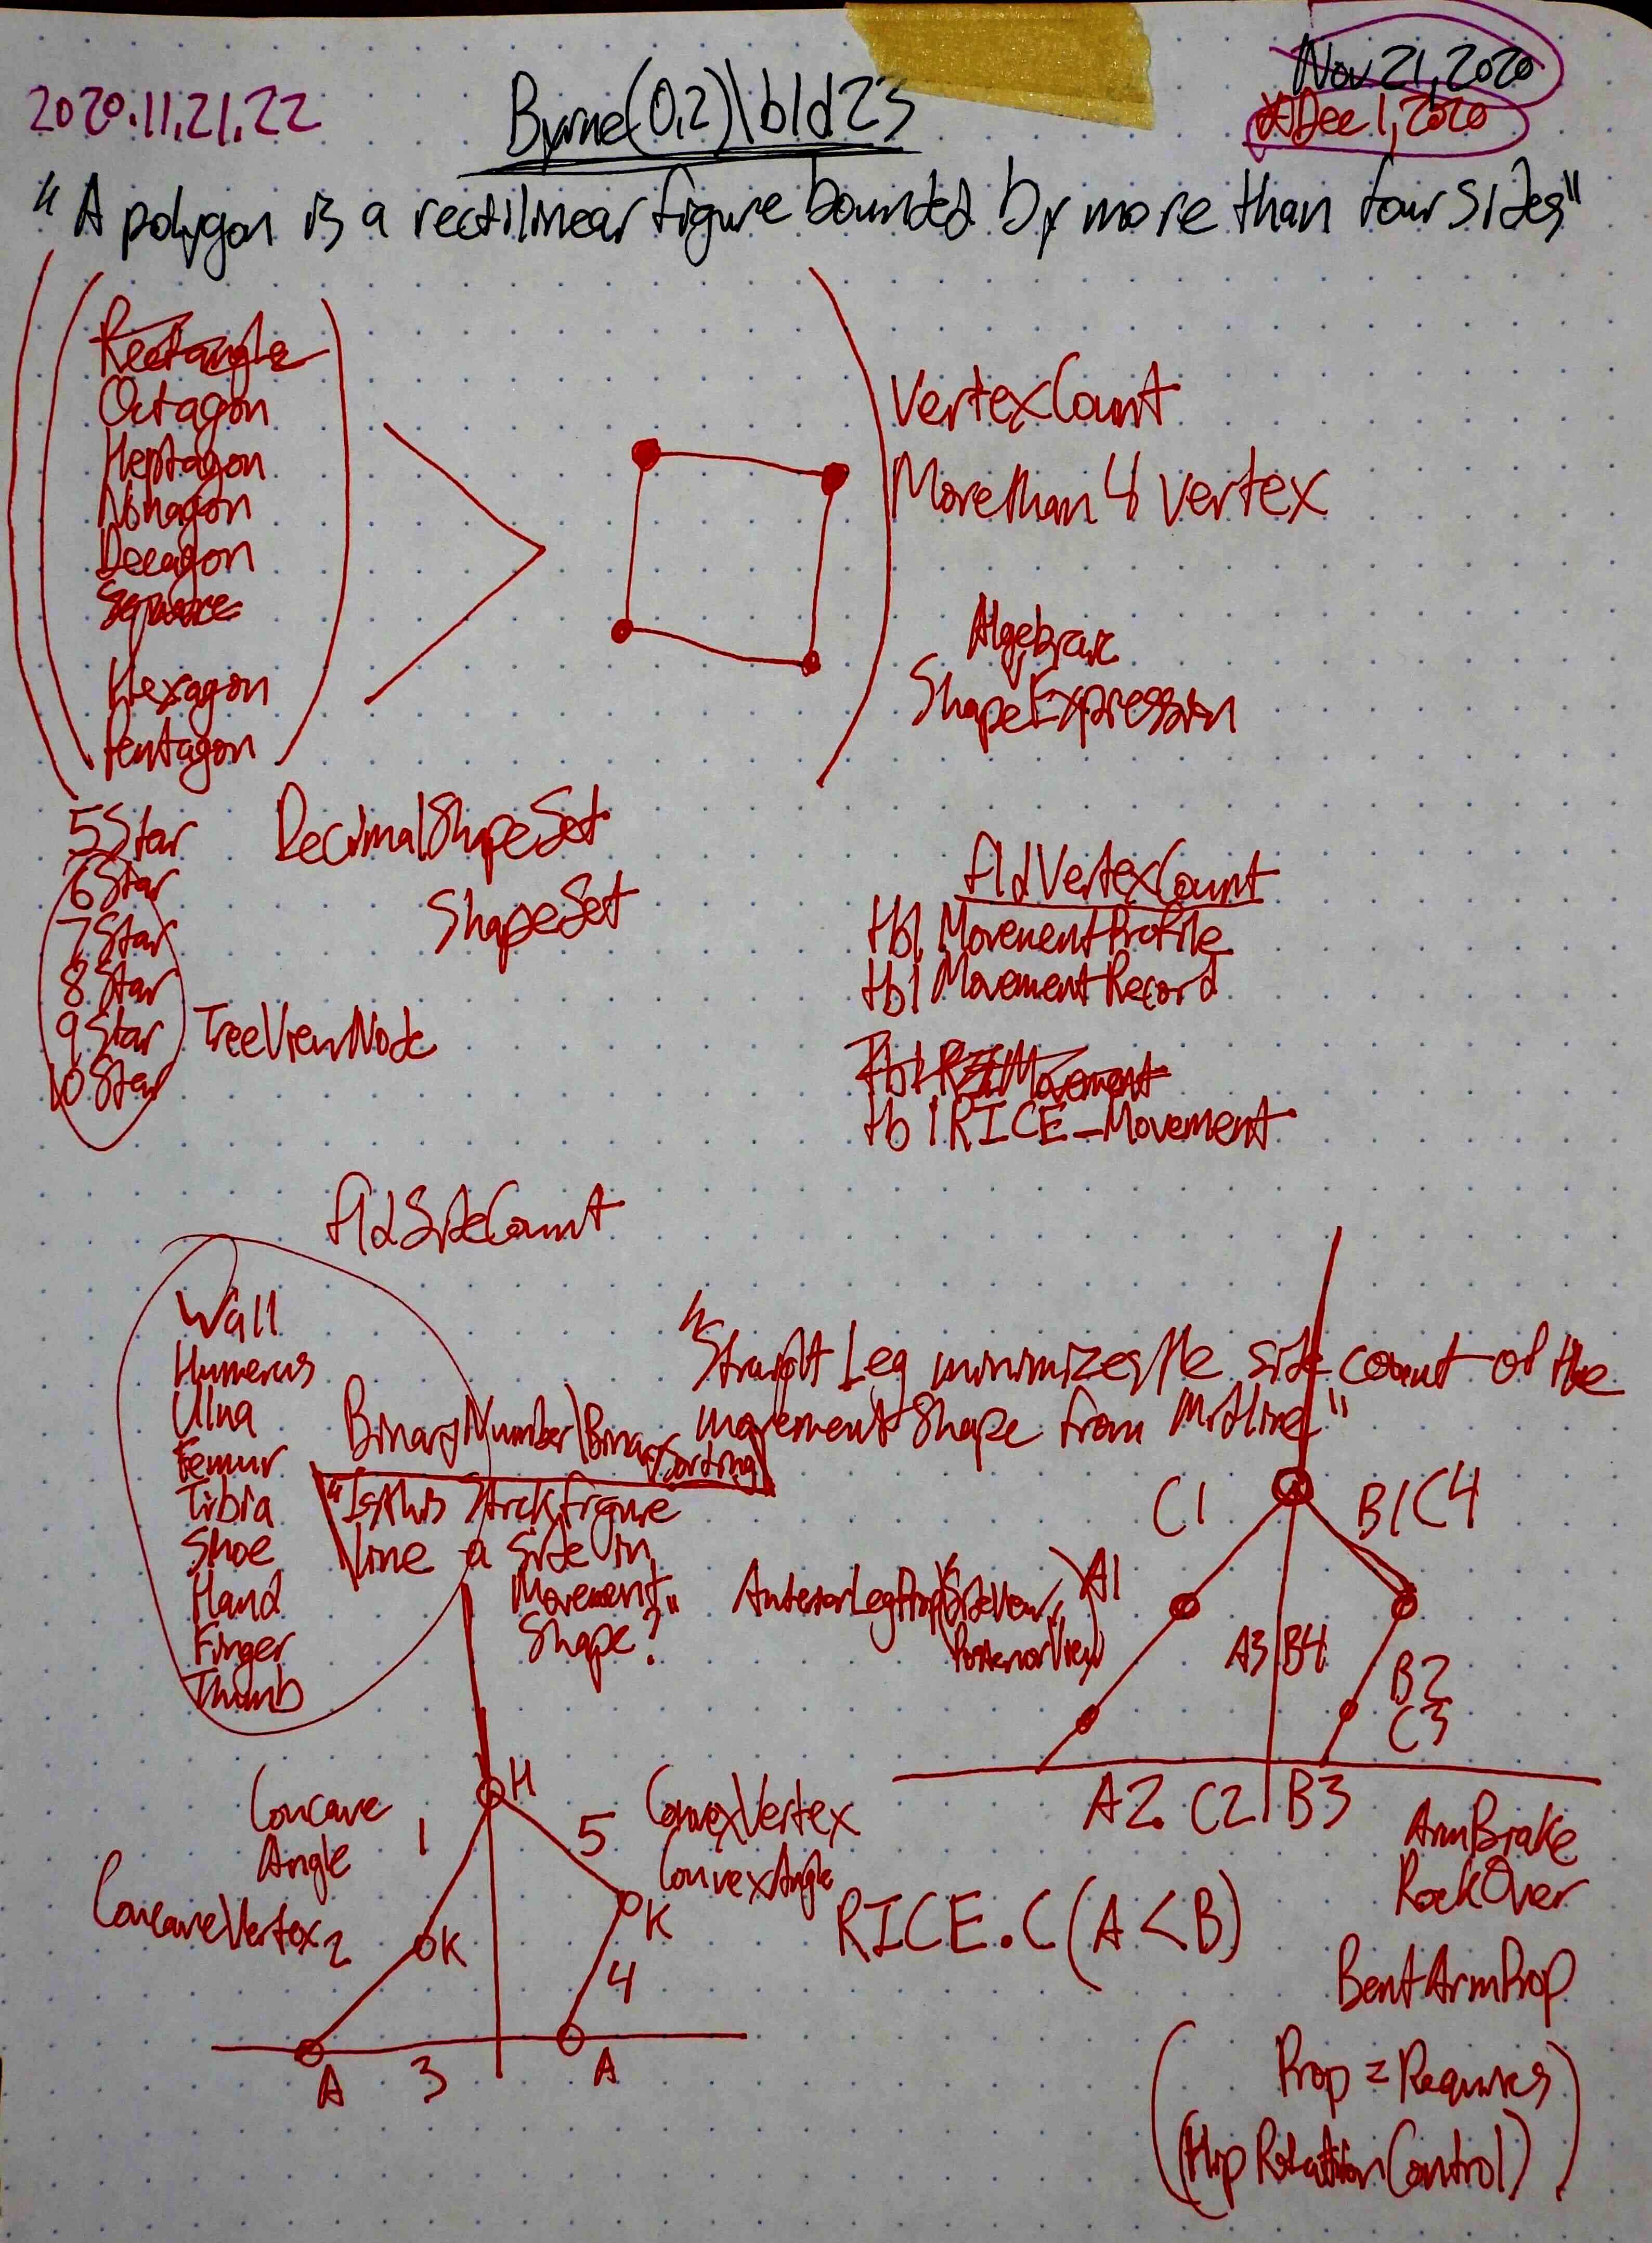 Nov 21, 2020
2020.11.21.22
Byrne(0,2)\bld23
Dec 1, 2020
"A polygon is a rectilinear figure bounded by more than four sides"
Rectangle
Octagon
Heptagon
Nonagon
Decagon
Square
Hexagon
Pentagon
>
VertexCount
More than 4 vertex
Algebraic
ShapeExpression
5Star
6Star
7Star
8Star
9Star
10Star
DecimalShapeSet
ShapeSet
TreeViewNode
fldVertexCount
tblMovementProfile
tblMovementRecord
tblRICE_Movement
fldSideCount
Wall
Humerus
Ulna
Femur
Tibia
Shoe
Hand
Finger
Thumb
BinaryNumber\BinarySorting
"Is this Stick figure
line a side in
Movement
Shape?"
"Straight Leg minimizes the side count of the
movement shape from midline"
C1
B1/C4
AnteriorLegProp(SideView,
PosteriorView)
A1
A3 B4
B2
C3
A2 C2 B3
H
Concave
Angle
1
5
ConvexVertex
ConvexAngle
ConcaveVertex
2
K
K
4
A
3
A
RICE.C(A<B)
ArmBrake
RockOver
BentArmProp
Prop = Requires
(HipRotationControl)